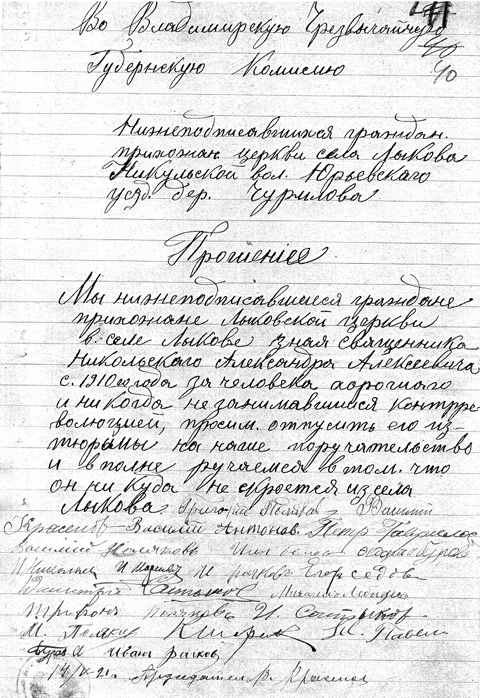 Во Владимирскую Чрезвычайную
Губернскую Комисию
40
Нижеподписавшихся граждан.
прихожан церкви села Лыкова
Никульской вол. Юрьевскаго
уезд. дер. Чурилова
Прошение
Мы нижеподписавшиеся граждане
прихожане Лыковской церкви
в селе Лыкове зная священника
Никольскаго Александра Алексеевича
с 1910 го года за человека хорошаго
и никогда не занимавшися контрре-
волюцией, просим отпустить его из-
тюрьмы на наше поручательство
и вполне ручаемся в том. что
он ни куда не скроется из села
Лыкова Григорий
Василий Антонов Петр Гаврилов
Василий
Егор Седов
Дмитрий
Трифон
М. Поляков
Иван
14/V-21 г. Председател